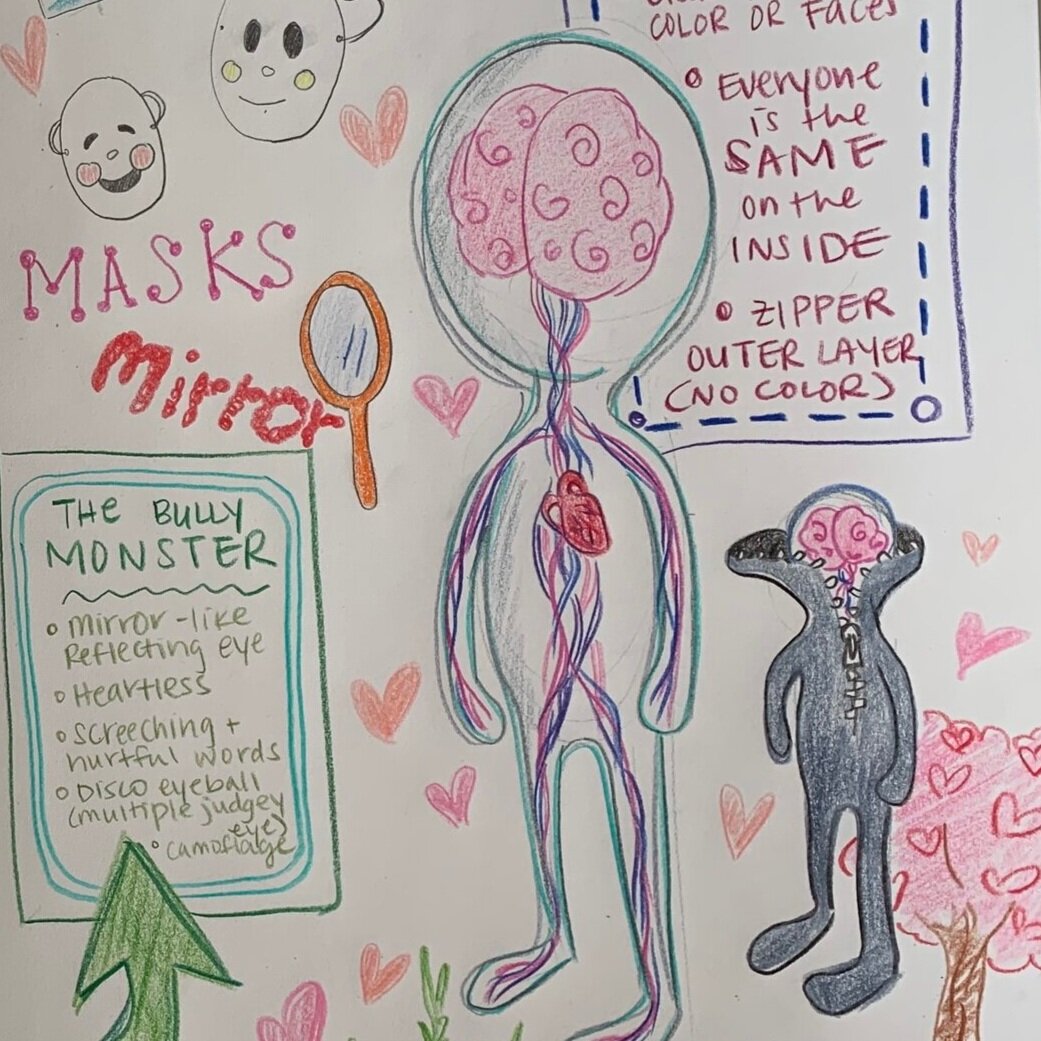 COLOR OR FACES
• EVERYONE
is the
SAME
on the
INSIDE
• ZIPPER
OUTER LAYER
(NO COLOR)
MASKS
Mirror
THE BULLY
MONSTER
• Mirror-like
Reflecting eye
• Heartless
• Screeching +
hurtful words
• Disco eyeball
(multiple judgey
eye)
• camoflage